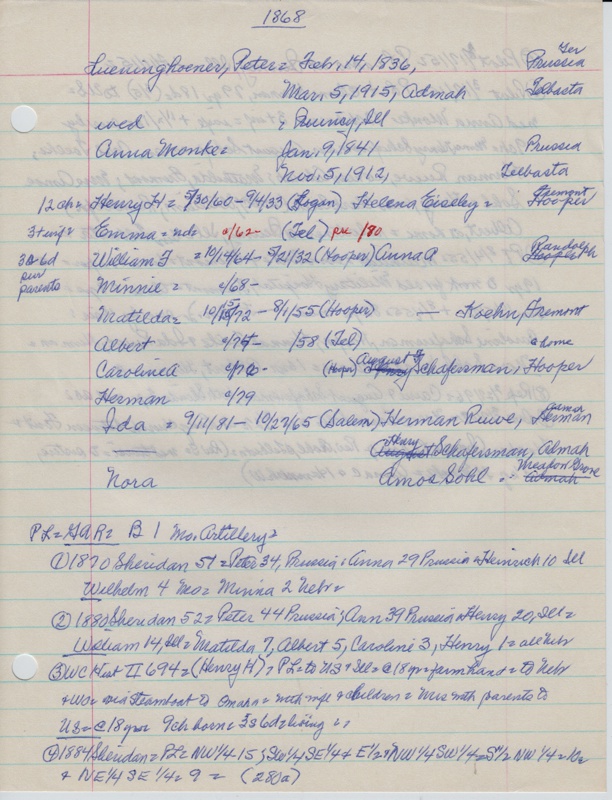 1868
Lueninghoener, Peter = Febr. 14, 1836, Prussia
Mar, 5, 1915, Admah Telbasta
wed = Quincy, Ill
Anna Monke = Jan, 9, 1841 Prussia
Nov, 5, 1912, Telbasta
12 ch = Henry H = 5/30/60 - 9/4/33 (Hogan) Helena Eiseley = Fremont Hooper
3 + wif = Emma = ndc 2/62 - (Tel) pre /80
3s 6d William F = 10/14/64 - 5/21/32 (Hooper) Anna A Randolph Hooper
par parents Minnie = 4/68 -
Matilda = /72 - 8/1/55 (Hooper) — Koehn, Fremont
Albert 9/75 - /58 (Tel) a dome
Caroline A (Hooper) August F Henry Schafersman, Hooper
Herman 9/79
Ida = 9/11/81 - 10/27/65 (Salem) Herman Ruwe, Herman
Henry August Schafersman, Admah
Nora Amos Sohl = Weapon Grove Admah
PL = GAR = B 1 Mo. Artillery =
① 1870 Sheridan 51 = Peter 34, Prussia; Anna 29 Prussia = Heinrich 10 Ill
Wilhelm 4 Mo = Minna 2 Nebr =
② 1880 Sheridan 52 = Peter 44 Prussia; Ann 39 Prussia = Henry 20, Ill =
William 14, Ill = Matilda 7, Albert 5, Caroline 3, Henry 1 = all Nebr
③ WC Hist II 694 = (Henry H), PL = to US + Ill = @ 18 yr = farmhand = to Nebr
+ WC = via Steamboat to Omaha = with wife + children = Mrs with parents to
US = @ 18 yrs 9 ch born = 3s 6d = living =,
④ 1884 Sheridan = PL = NW 1/4 15; SW 1/4 SE 1/4 + E 1/2 + NW 1/4 SW 1/4 = S 1/2 NW 1/4 = 10
+ NE 1/4 SE 1/4 = 9 = (280a)